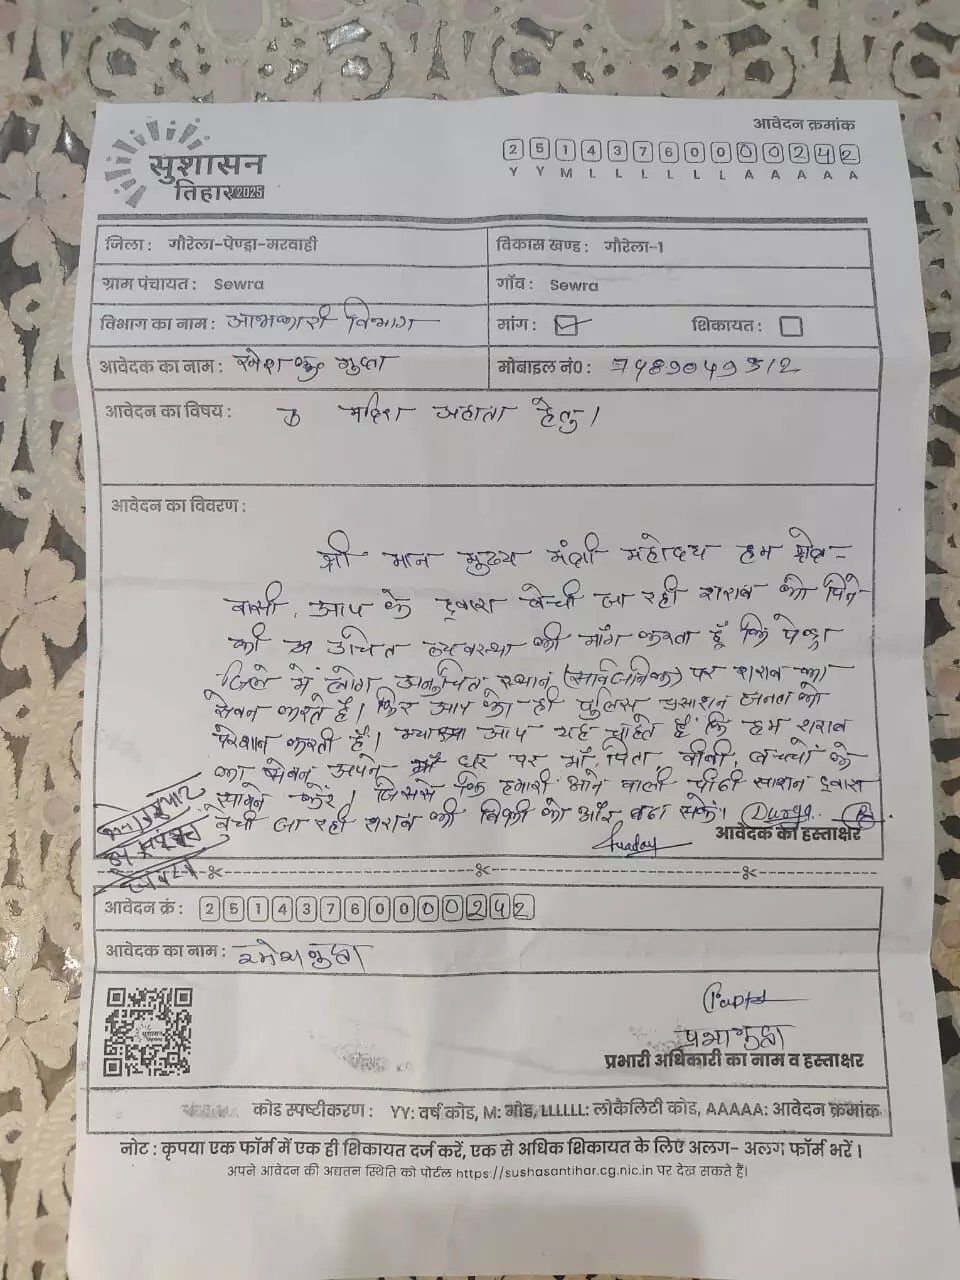 आवेदन क्रमांक
सुशासन
तिहार 2025
2 5 1 4 3 7 6 0 0 0 0 0 2 4 2
Y Y M L L L L L L A A A A A A
जिला : गौरेला-पेण्ड्रा-मरवाही विकास खण्ड : गौरेला-1
ग्राम पंचायत : Sewra गाँव : Sewra
विभाग का नाम : आबकारी विभाग मांग : ☑ शिकायत : ☐
आवेदक का नाम : रमेश कु गुप्ता मोबाइल नं० :
आवेदन का विषय : मदिरा अहाता हेतु।
आवेदन का विवरण :
श्री मान मुख्य मंत्री महोदय हम क्षेत्र-
वासी, आप के द्वारा बेच्ची जा रही शराब को पिने
की उचित व्यवस्था की माँग करता हूँ कि पेन्ड्रा
जिले में लोग अनुचित स्थान (सार्वजनिक) पर शराब का
सेवन करते है। फिर आप की ही पुलिस प्रसाशन जनता को
परेशान करती है। क्या आप यह चाहते है कि हम शराब
का सेवन अपने घर पर माँ, पिता, बीवी, बच्चों के
सामने करें। जिससे कि हमारी आने वाली पीढी साशन द्वारा
बेची जा रही शराब की बिक्री को और बढा सकें।
आवेदक का हस्ताक्षर
आवेदन क्रं : 2 5 1 4 3 7 6 0 0 0 0 0 2 4 2
आवेदक का नाम : रमेश गुप्ता
सुशासन
प्रभा गुप्ता
प्रभारी अधिकारी का नाम व हस्ताक्षर
कोड स्पष्टीकरण : YY: वर्ष कोड, M: मोड, LLLLLL: लोकैलिटी कोड, AAAAA: आवेदन क्रमांक
नोट : कृपया एक फॉर्म में एक ही शिकायत दर्ज करें, एक से अधिक शिकायत के लिए अलग- अलग फॉर्म भरें।
अपने आवेदन की अद्यतन स्थिति को पोर्टल https://sushasantihar.cg.nic.in पर देख सकते हैं।